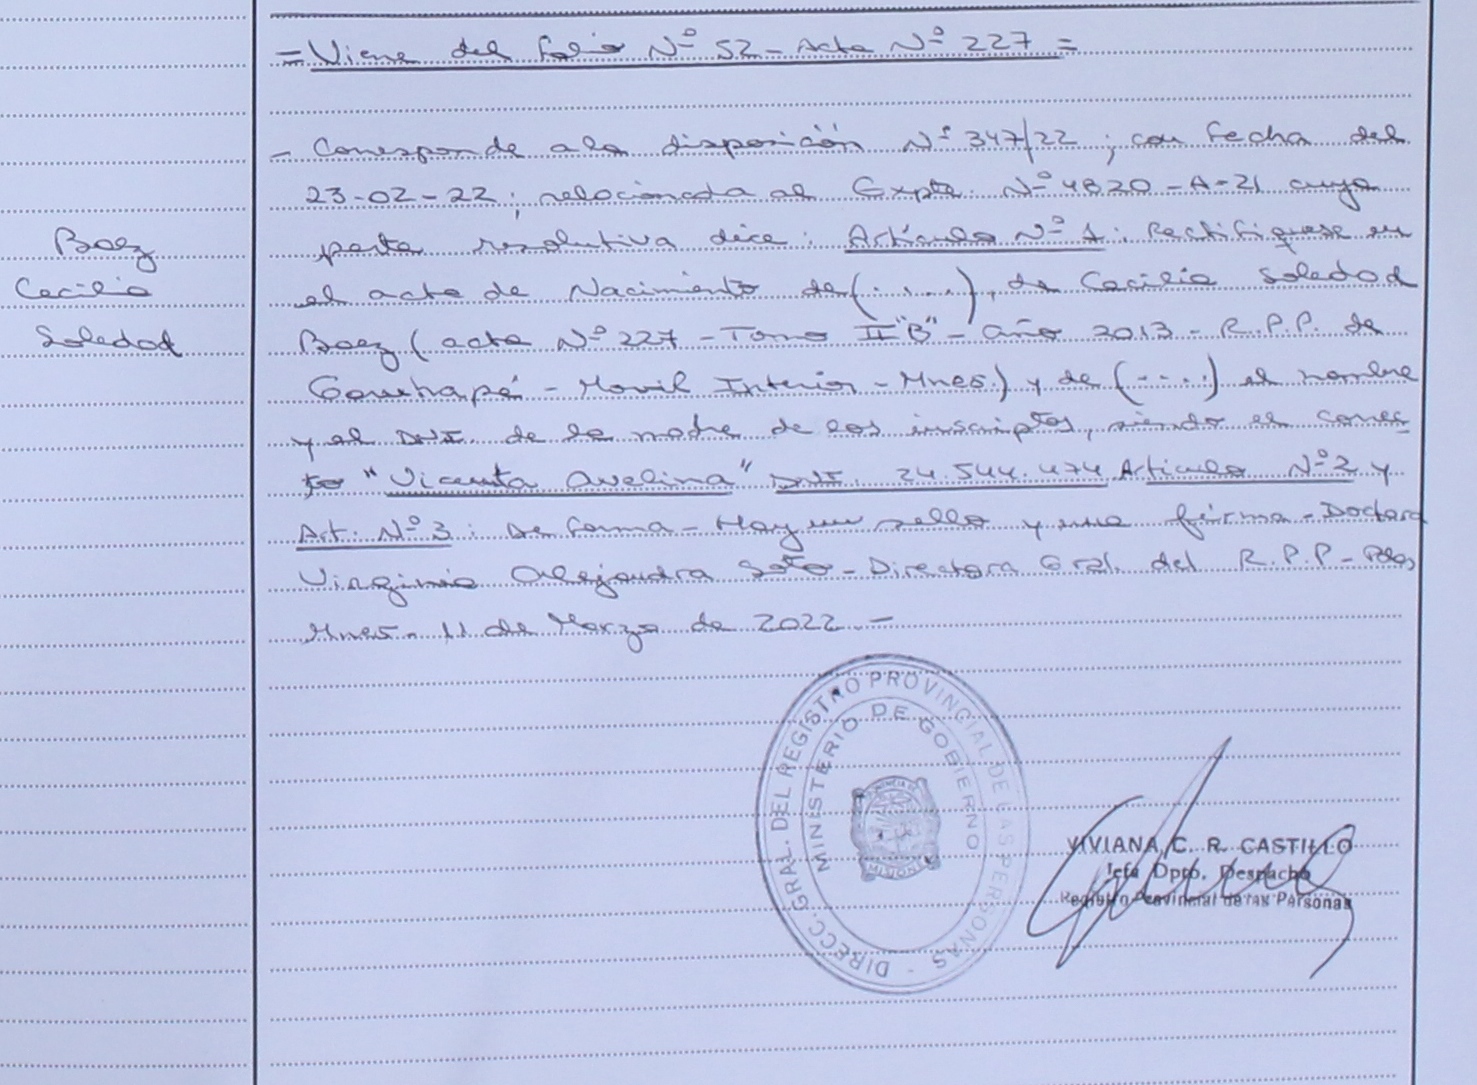 = Viene del Folio Nº 52 - Acta Nº 227 =
- Corresponde a la disposición Nº 347/22 ; con fecha del
23-02-22 ; relacionada al Expte. Nº 4820 - A - 21 cuya
parte resolutiva dice : Artículo Nº 1 : Rectifiquese en
Baez
el acta de Nacimiento de (.....), de Cecilia Soledad
Cecilia
Baez ( acta Nº 227 - Tomo II "B" - año 2013 - R.P.P. de
Soledad
Garuhapé - Movil Interior - Mnes) y de (....) el nombre
y el DNI. de la madre de los inscriptos, siendo el correc-
to "Vicenta Avelina" DNI. 24.544.474 Articulo Nº 2 y
Art. Nº 3 : De forma - Hay un sello y una firma - Doctora
Virginia Alejandra Soto - Directora Gral. del R.P.P - Pdas
Mnes. 11 de Marzo de 2022 -
DIRECC. GRAL. DEL REGISTRO PROVINCIAL DE LAS PERSONAS -
MINISTERIO DE GOBIERNO
PROVINCIA DE
MISIONES
VIVIANA C. R. CASTILLO
Jefa Dpto. Despacho
Registro Provincial de las Personas